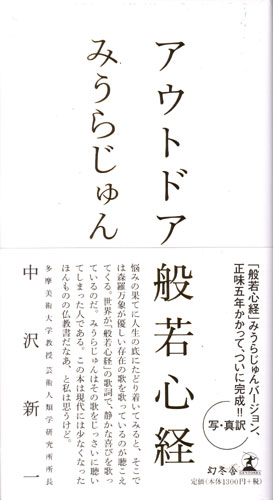 アウトドア般若心経
みうらじゅん
「般若心経」みうらじゅんバージョン、
正味五年かかって、ついに完成!!
写・真訳
悩みの果てに人生の底にたどり着いてみると、そこで
は森羅万象が優しい存在の歌を歌っているのが聴こえ
てくる。世界が「般若心経」の歌詞で、静かな喜びを歌っ
ているのだ。みうらじゅんはその歌をじっさいに聴い
てしまった人である。この本は現代には少なくなった
ほんものの仏教書だなあ、と私は思うけど。
多摩美術大学教授 芸術人類学研究所所長
中沢新一
幻冬舎
定価(本体1300円+税)